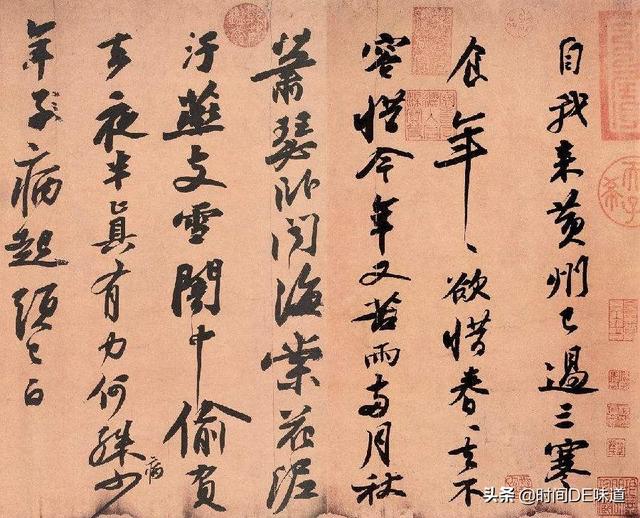 自我来黄州已過三寒
食年〻欲惜春〻去不
容惜今年又苦雨兩月秋
蕭瑟卧聞海棠花泥
汙燕支雪闇中偷負
去夜半真有力何殊少病
年子病起頭已白
头条 @时间DE味道